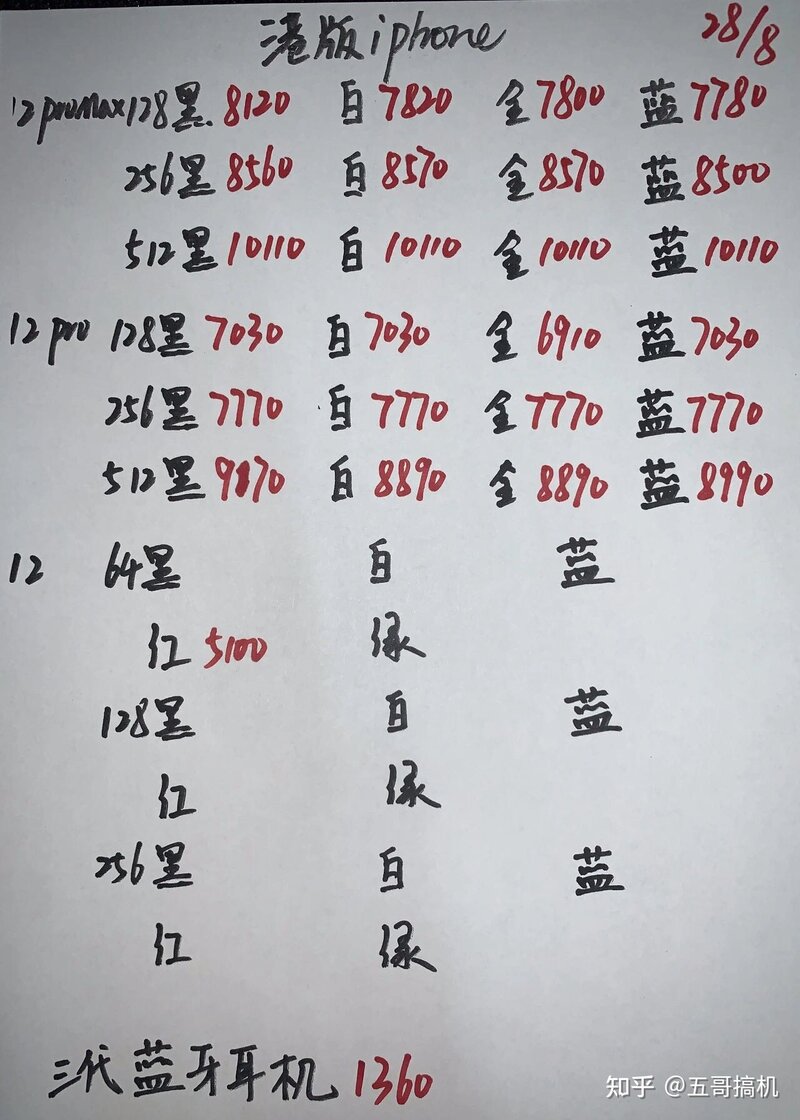 港版iphone 28/8
12promax128黑8120 白7820 金7800 蓝7780
256黑8560 白8570 金8570 蓝8500
512黑10110 白10110 金10110 蓝10110
12pro 128黑7030 白7030 金6910 蓝7030
256黑7770 白7770 金7770 蓝7770
512黑9870 白8890 金8890 蓝8990
12 64黑 白 蓝
红5100 绿
128黑 白 蓝
红 绿
256黑 白 蓝
红 绿
三代蓝牙耳机1360
知乎 @五哥搞机